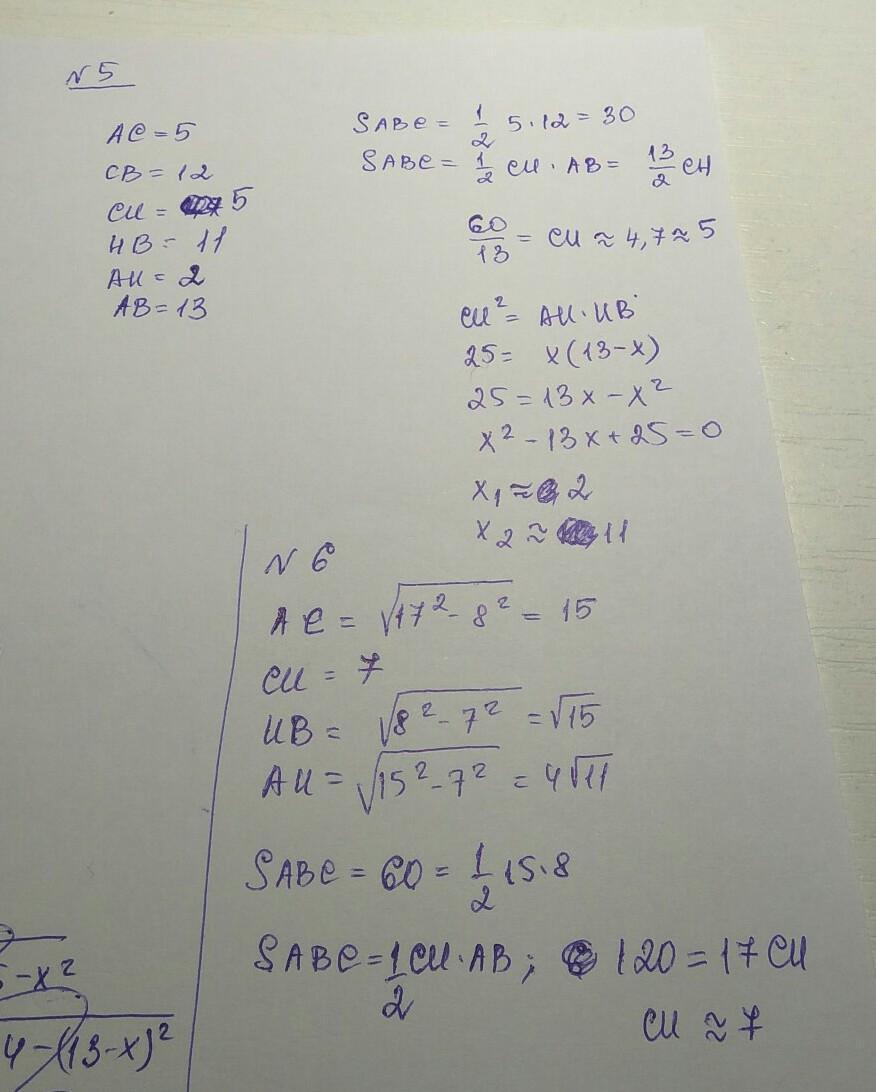 N 5
AC = 5
CB = 12
CH = 5
HB = 11
AH = 2
AB = 13
SABC = 1/2 5·12 = 30
SABC = 1/2 CH · AB = 13/2 CH
60/13 = CH ≈ 4,7 ≈ 5
CH² = AH·HB
25 = x(13-x)
25 = 13x - x²
x² - 13x + 25 = 0
x₁ ≈ 2
x₂ ≈ 11
N 6
AC = √(17² - 8²) = 15
CH = 7
HB = √(8² - 7²) = √15
AH = √(15² - 7²) = 4√11
SABC = 60 = 1/2 15·8
SABC = 1/2 CH·AB; 120 = 17 CH
CH ≈ 7
- x²
4 - (13-x)²